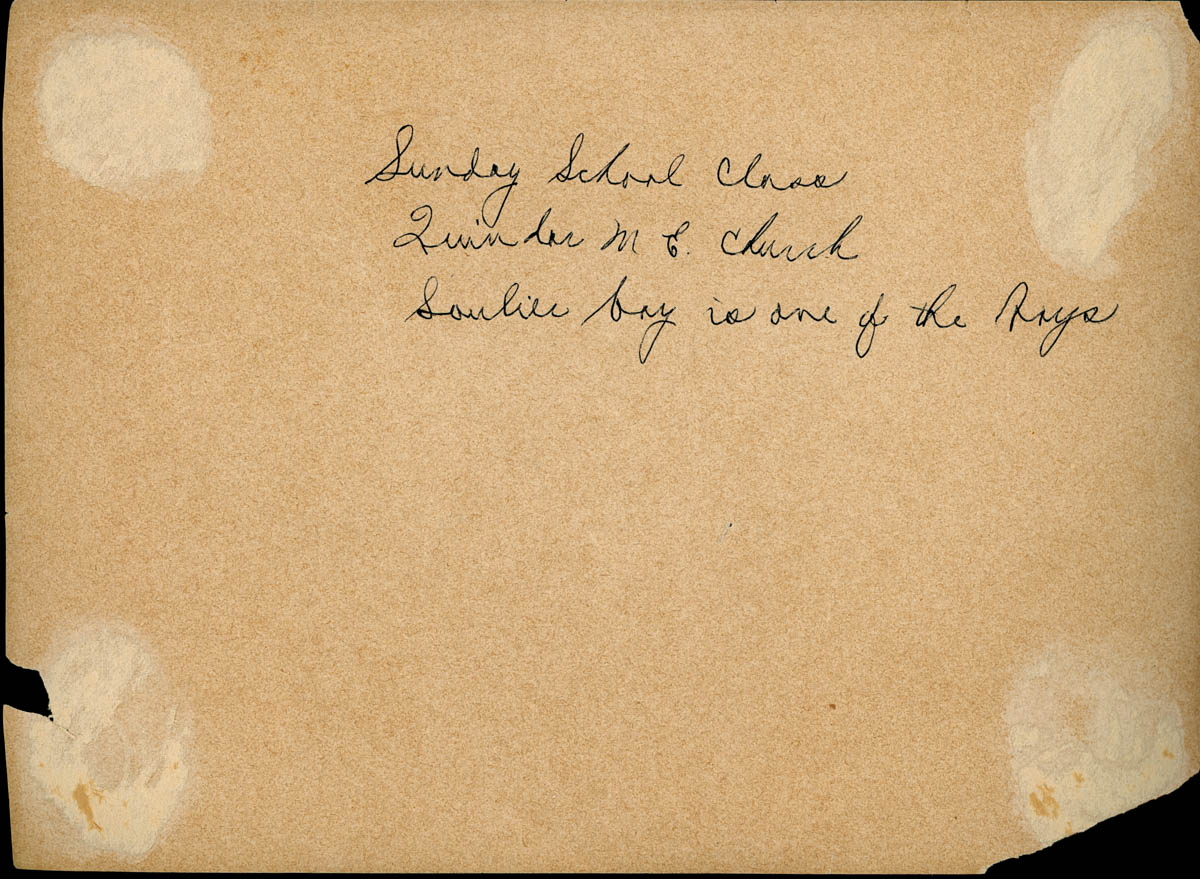 Sunday School Class
Quindar M E. Church
Soulier boy is one of the Boys